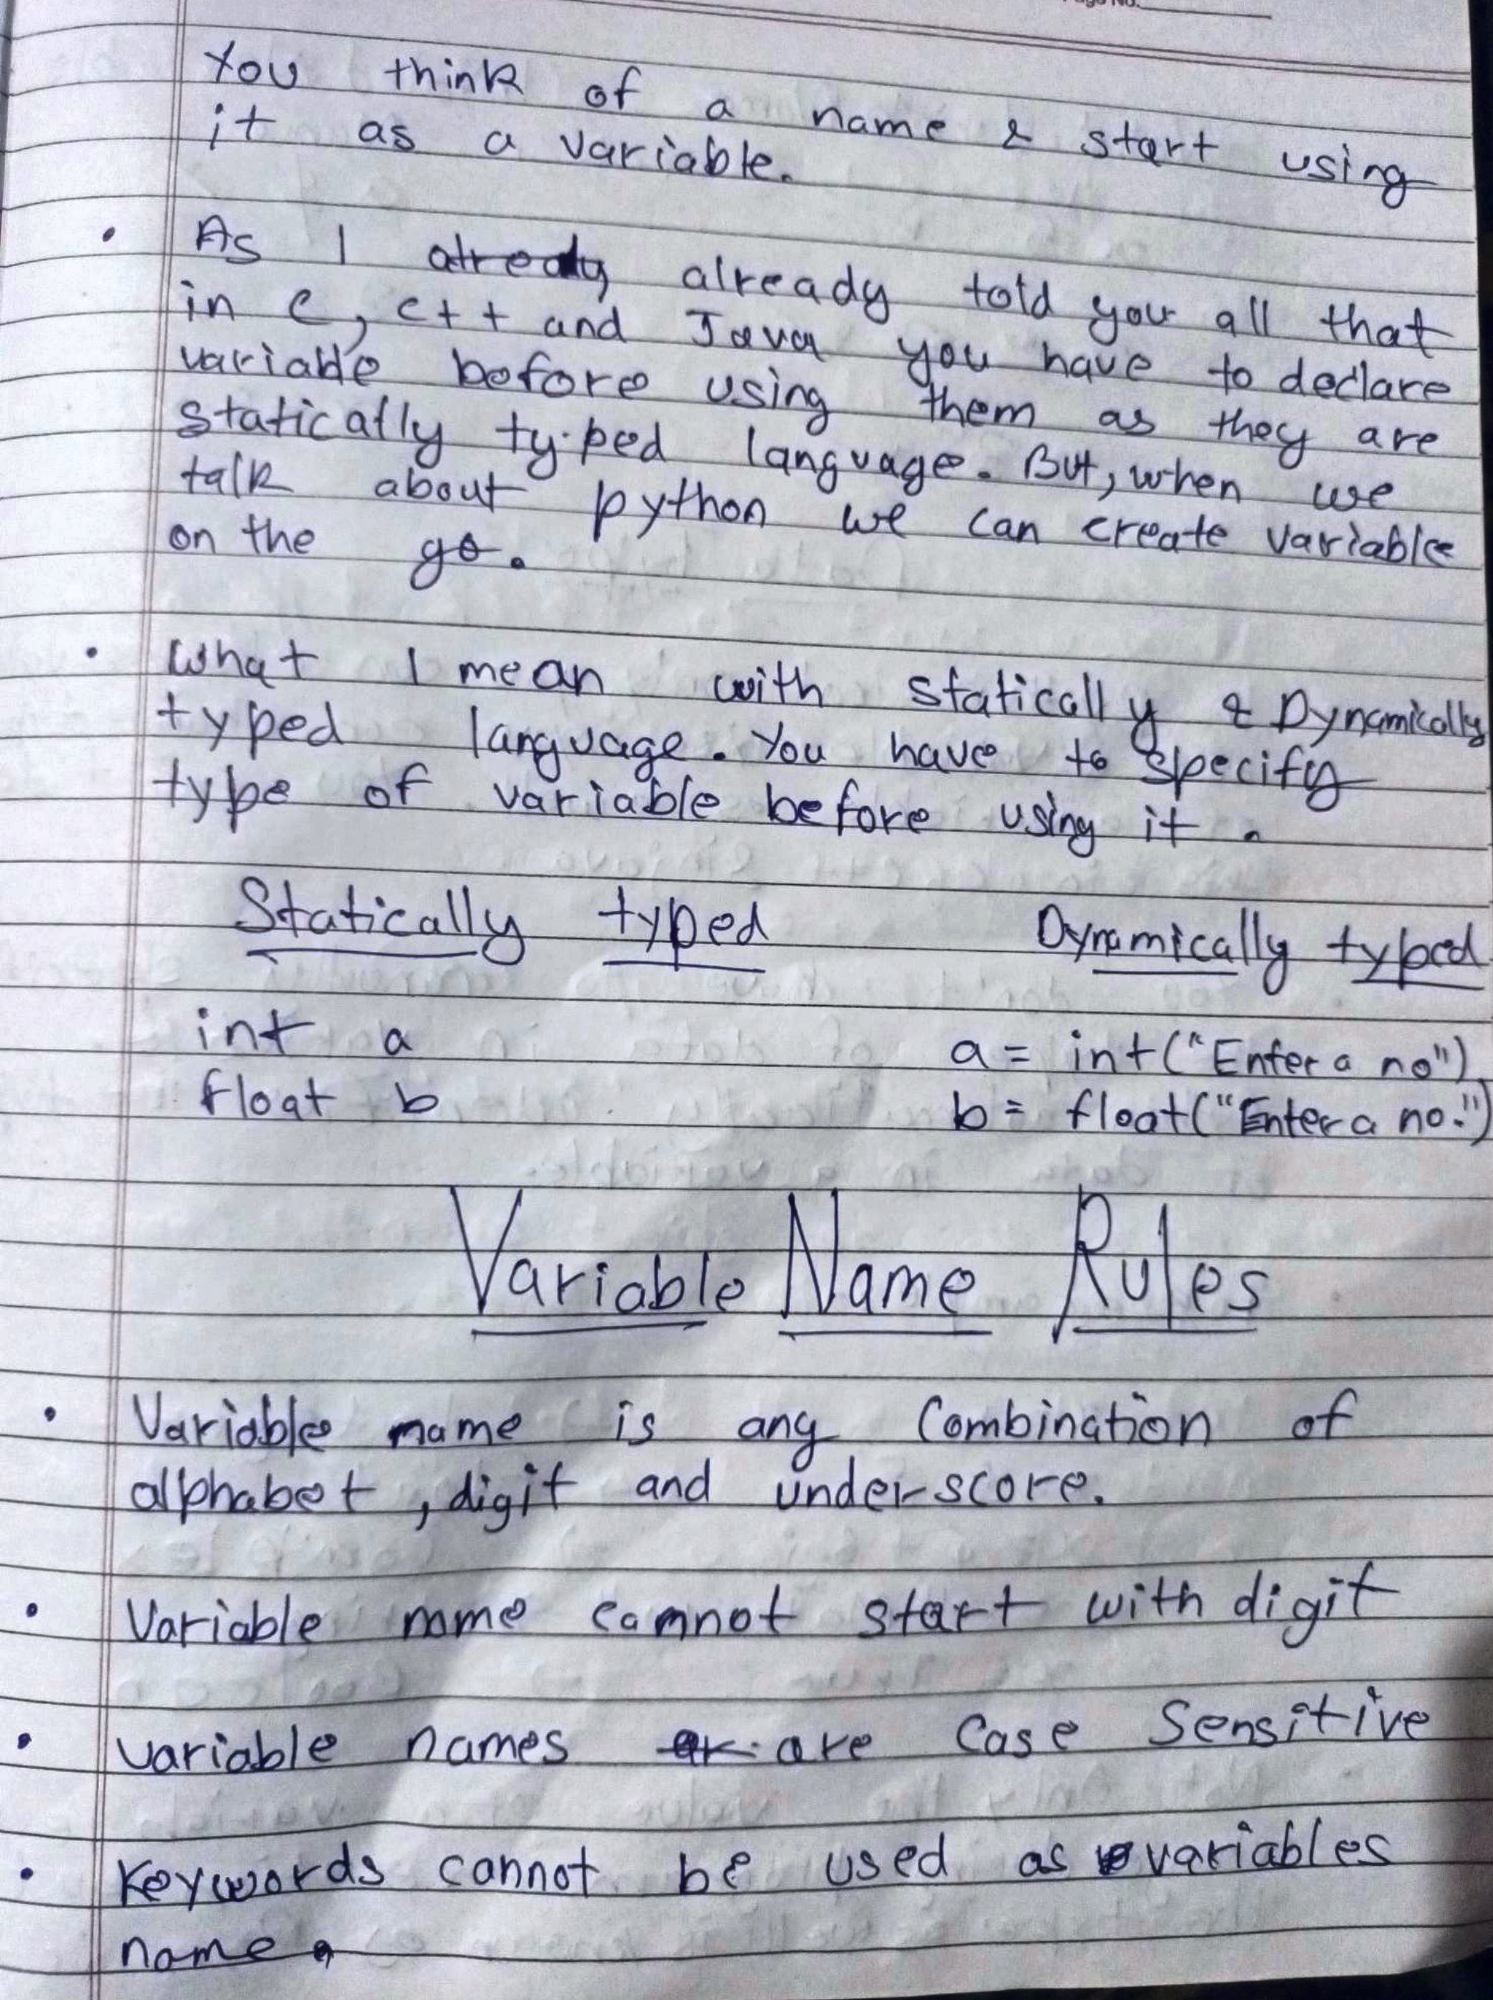 Page No.
You think of a name & start using
it as a variable.
• As I alredy already told you all that
in c, c++ and Java you have to declare
variable before using them as they are
statically typed language. But, when we
talk about python we can create variable
on the go.
• What I mean with statically & Dynamically
typed language. You have to specify
type of variable before using it.
Statically typed Dynamically typed
int a a = int("Enter a no")
float b b = float("Enter a no.")
Variable Name Rules
• Variable name is any Combination of
alphabet, digit and under-score.
• Variable name cannot start with digit
• variable names are Case Sensitive
• Keywords cannot be used as variables
name.